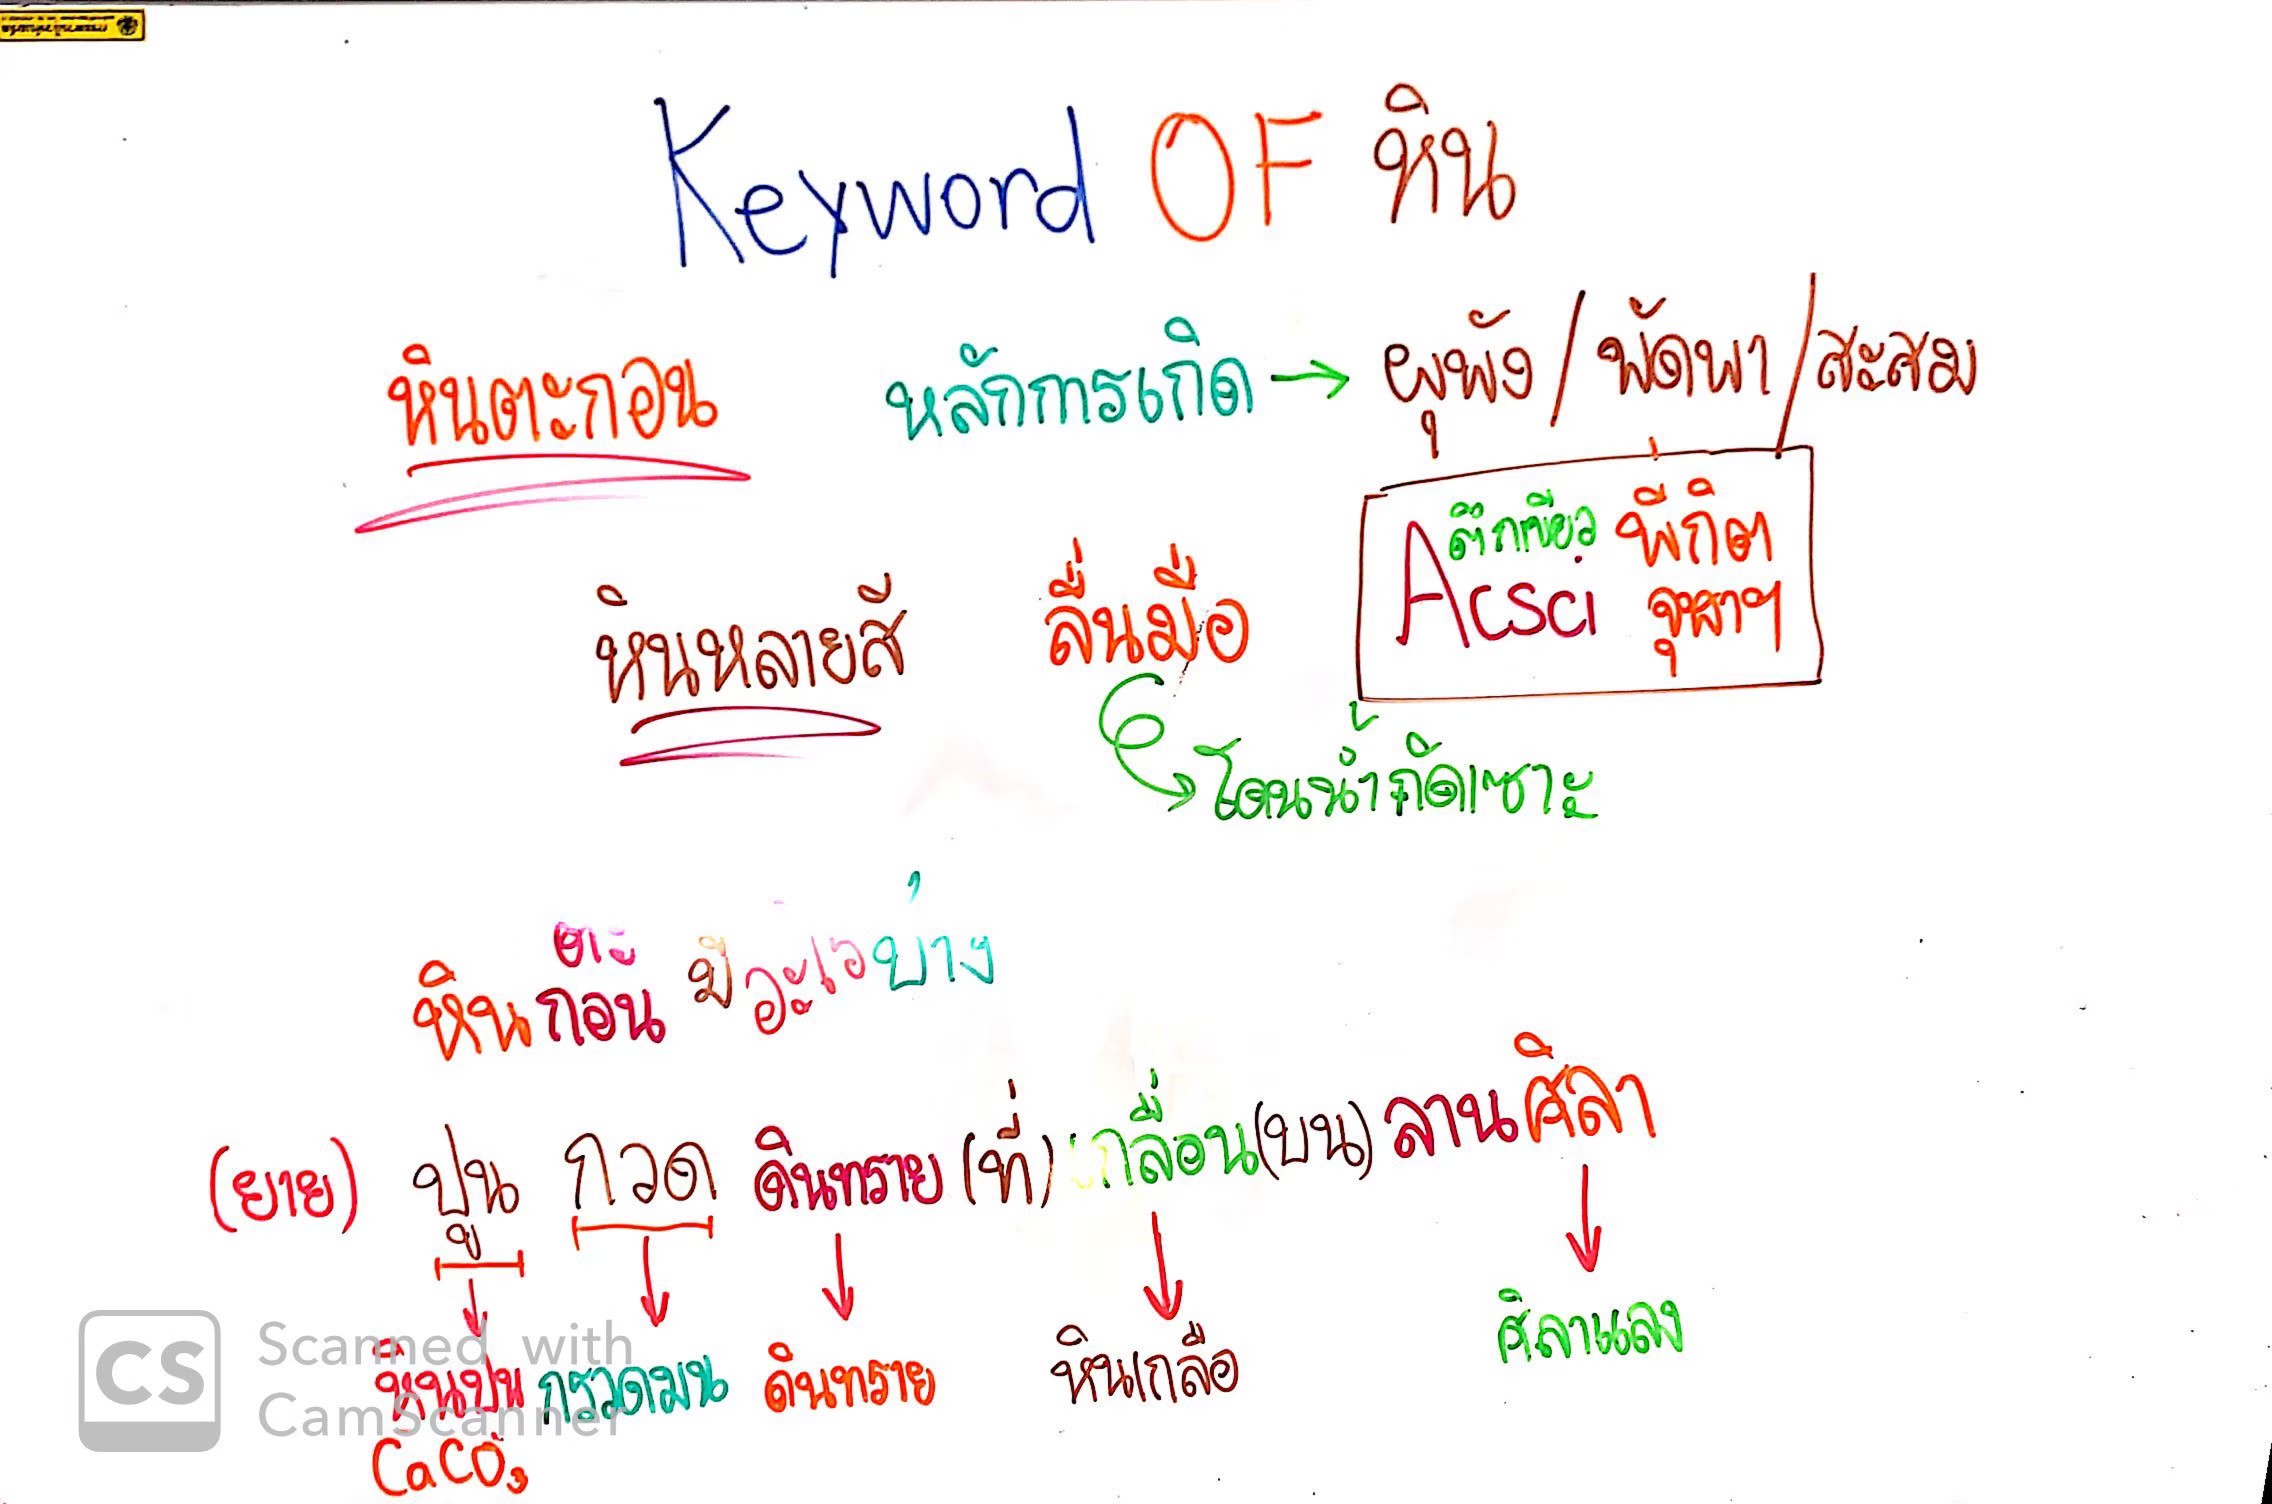 Keyword OF หิน
หินตะกอน หลักการเกิด → ผุพัง / พัดพา / สะสม
ตึกเขียว พี่กิต
Acsci จุฬาฯ
หินหลายสี ลื่นมือ
โดนน้ำกัดเซาะ
หินตะกอน มีอะไรบ้าง
(ยาย) ปูน กวด ดินทราย (ที่) เกลื่อน (บน) ลานศิลา
หินปูน กรวดมน ดินทราย หินเกลือ ศิลาแลง
CaCO₃
CS Scanned with
CamScanner